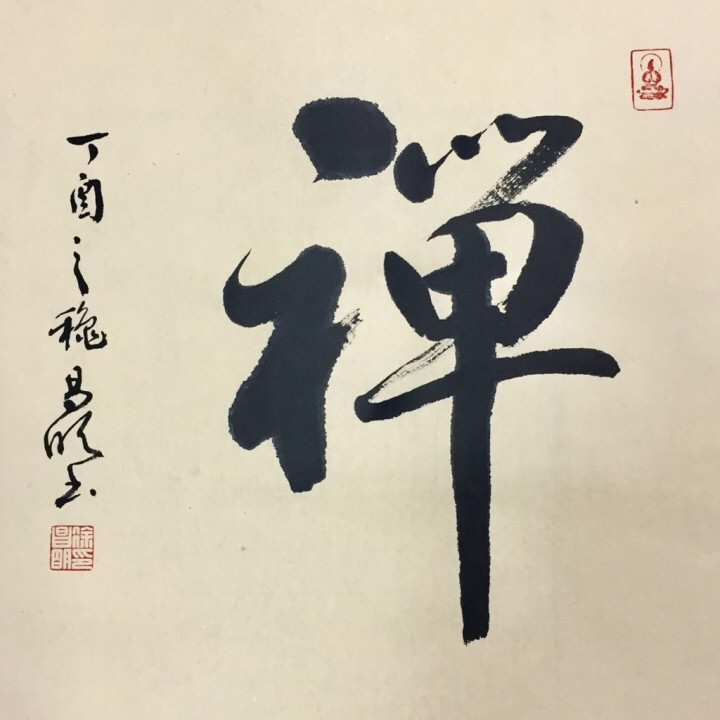 禅
丁酉之穐昌明书
徐印昌明